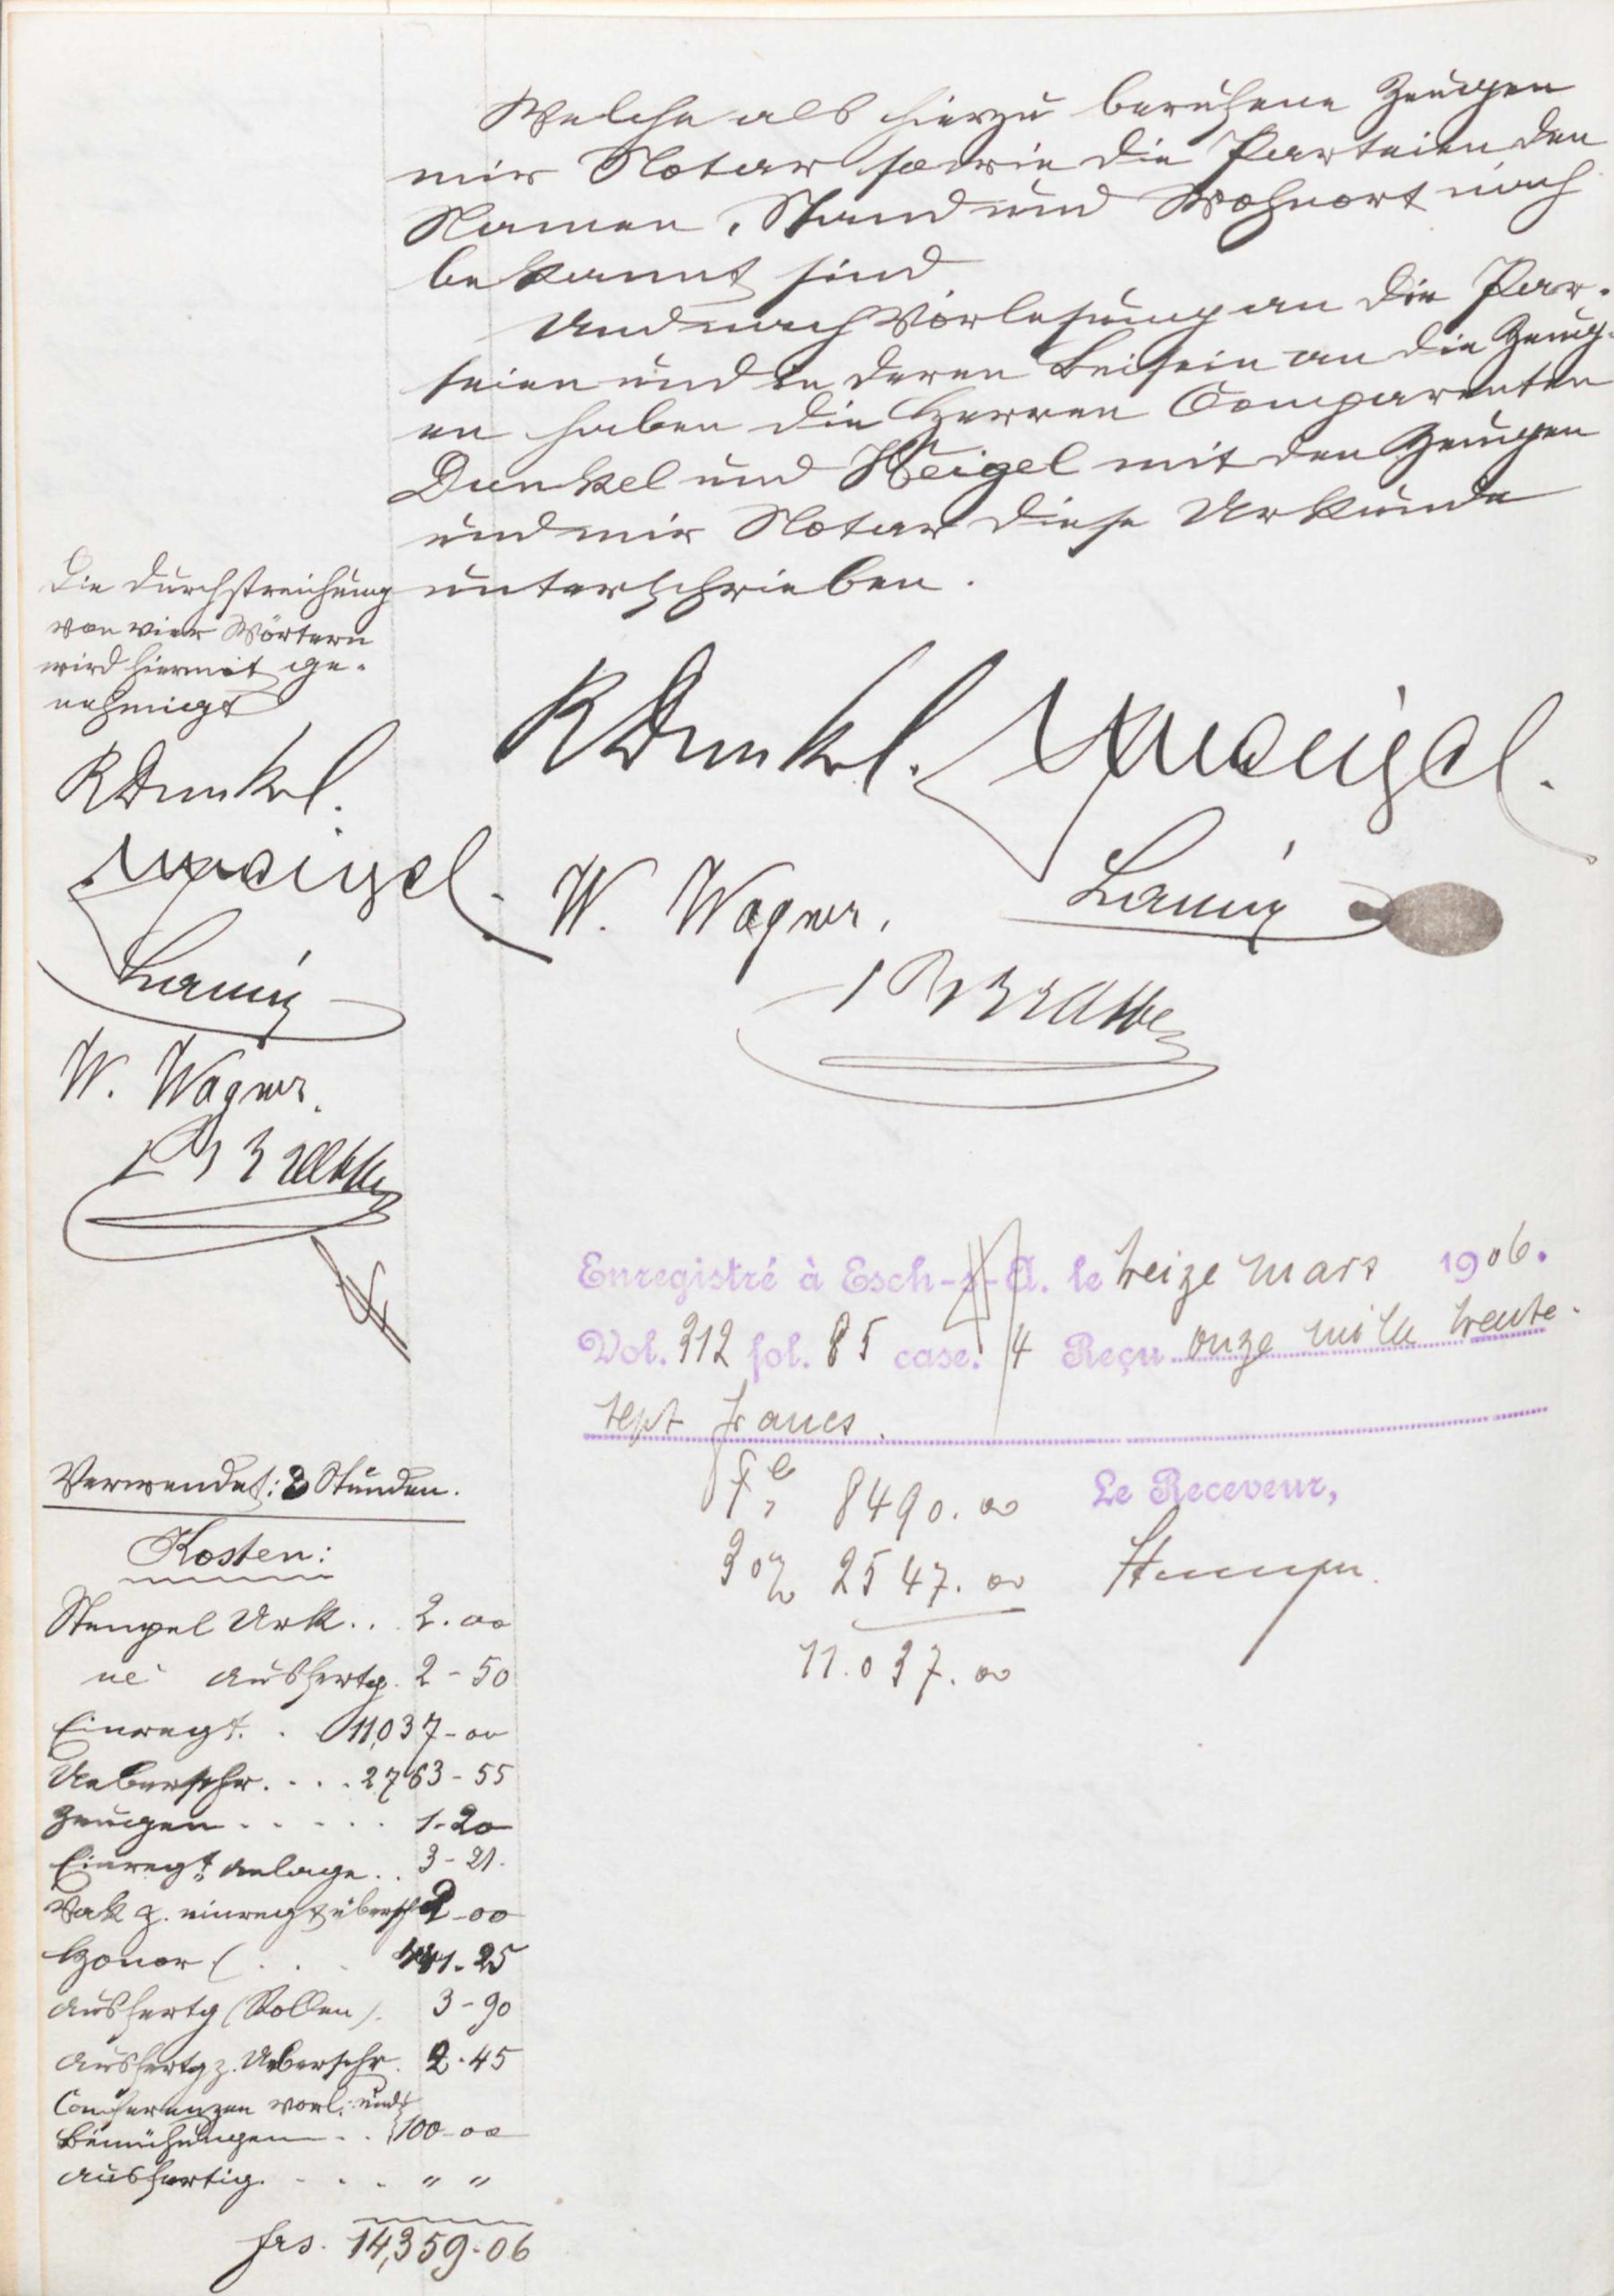 Welche als hierzu berufene Zeugen
mir Notar sowie die Parteien den
Namen, Stand und Wohnort nach
bekannt sind.
Und nach Vorlesung an die Par-
teien und in deren Beisein an die Zeug-
en haben die Herren Comparenten
Dunkel und Weigel mit den Zeugen
und mir Notar diese Urkunde
unterschrieben.
Die Durchstreichung
von vier Wörtern
wird hiermit ge-
nehmigt
RDunkel.
Weigel.
W. Wagner.
RDunkel.
Weigel.
W. Wagner.
Enregistré à Esch-s-A. le treize mars 1906.
Vol. 312 fol. 85 case. 4 Reçu onze mille trente
sept francs.
8490.00
30% 2547.00
11.037.00
Le Receveur,
Verwendet: 3 Stunden.
Kosten:
Stempel Urk.. 2.00
Ausfertg. 2-50
Einregt. . 11,037-00
Ueberschr. . . . 2763-55
Zeugen . . . . . 1-20
Einregt. Anlage . . 3-21.
z. einregt & übersch 2-00
Honor ( . . . 441.25
Ausfertg (Rollen). 3-90
Ausfertg z. Ueberschr. 2.45
Conferenzen vorl. und
Bemühungen . . 100-00
Ausfertig. . . . " "
frs. 14,359-06